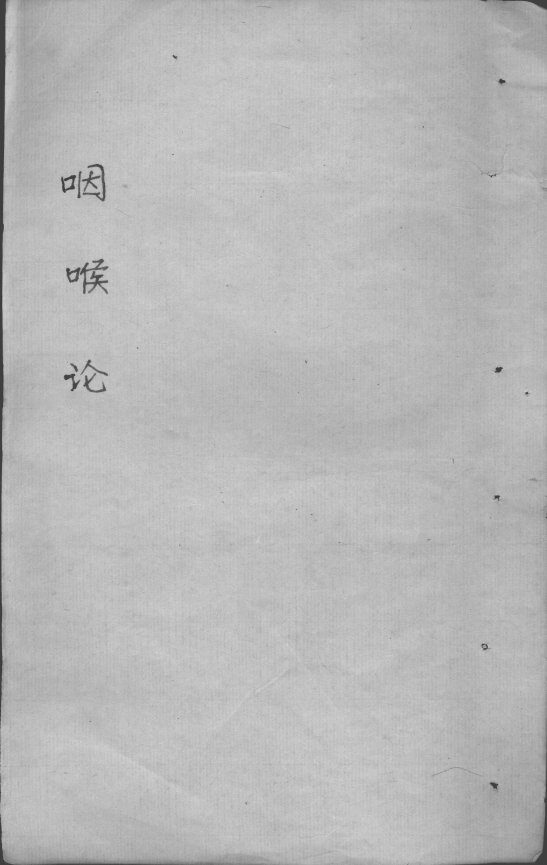 咽喉论